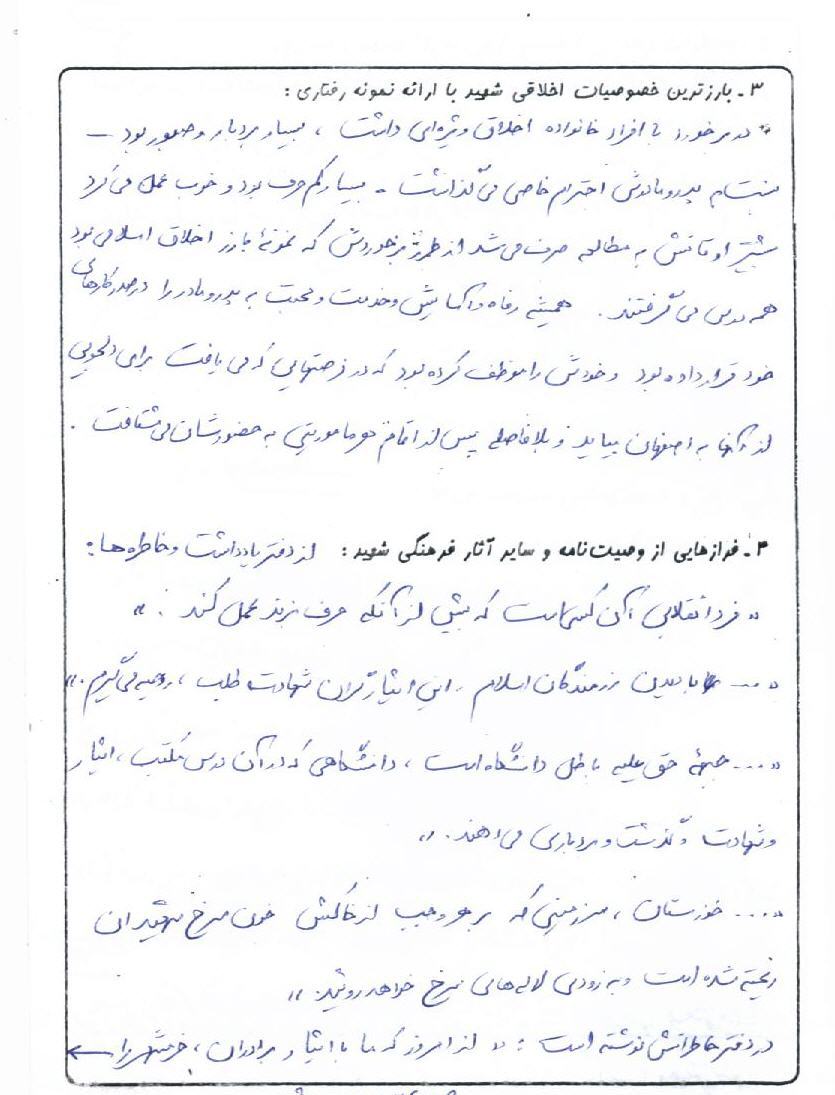 ۳ـ بارزترین خصوصیات اخلاقی شهید با ارائه نمونه رفتاری :
* در برخورد با افراد خانواده اخلاق ویژه‌ای داشت ، بسیار بردبار و صبور بود ـ
به پدر و مادرش احترام خاصی می‌گذاشت ـ بسیار کم حرف بود و خوب عمل می‌کرد
بیشتر اوقاتش به مطالعه صرف می‌شد از طرز برخوردش که نمونهٔ بارز اخلاق اسلامی بود
همه درس می‌گرفتند . همیشه رفاه و آسایش و خدمت و محبت به پدر و مادر را در صدر کارهای
خود قرار داده بود و خودش را موظف کرده بود که در فرصتهایی که می یافت برای دلجویی
از آنها به اصفهان بیاید و بلافاصله پس از اتمام هر ماموریتی به حضورشان می شتافت .
۴ـ فرازهایی از وصیت‌نامه و سایر آثار فرهنگی شهید : از دفتر یادداشت و خاطره‌ها :
« فرد انقلابی آن کسی است که پیش از آنکه حرف بزند عمل کند . »
« ... با دیدن رزمندگان اسلام ، این ایثارگران شهادت طلب ، روحیه می‌گیرم . »
« ... جبههٔ حق علیه باطل دانشگاه است ، دانشگاهی که در آن درس مکتب ، ایثار
و شهادت و گذشت و بردباری می‌دهند . »
« ... خوزستان ، سرزمینی که بر هر وجب از خاکش خون سرخ شهیدان
ریخته شده است و به زودی لاله‌های سرخ خواهد روئید . »
در دفتر خاطراتش نوشته است : « از امروز که ما با ایثار برادران ، خرمشهر را ←